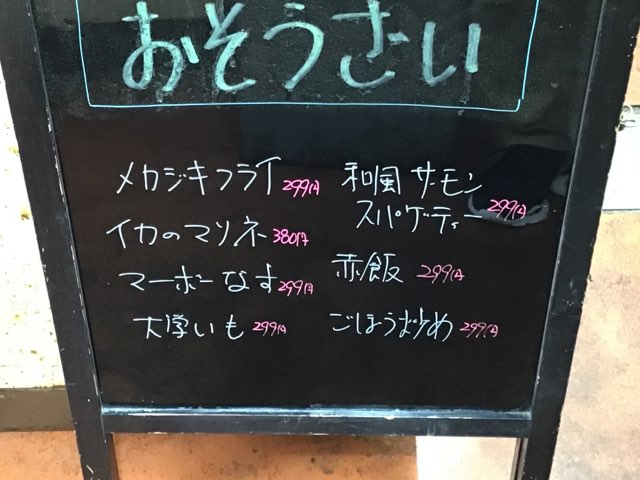 おそうさい
メカジキフライ 299円
イカのマリネ 380円
マーボーなす 299円
大学いも 299円
和風サーモン
スパゲティー 299円
赤飯 299円
ごぼう炒め 299円